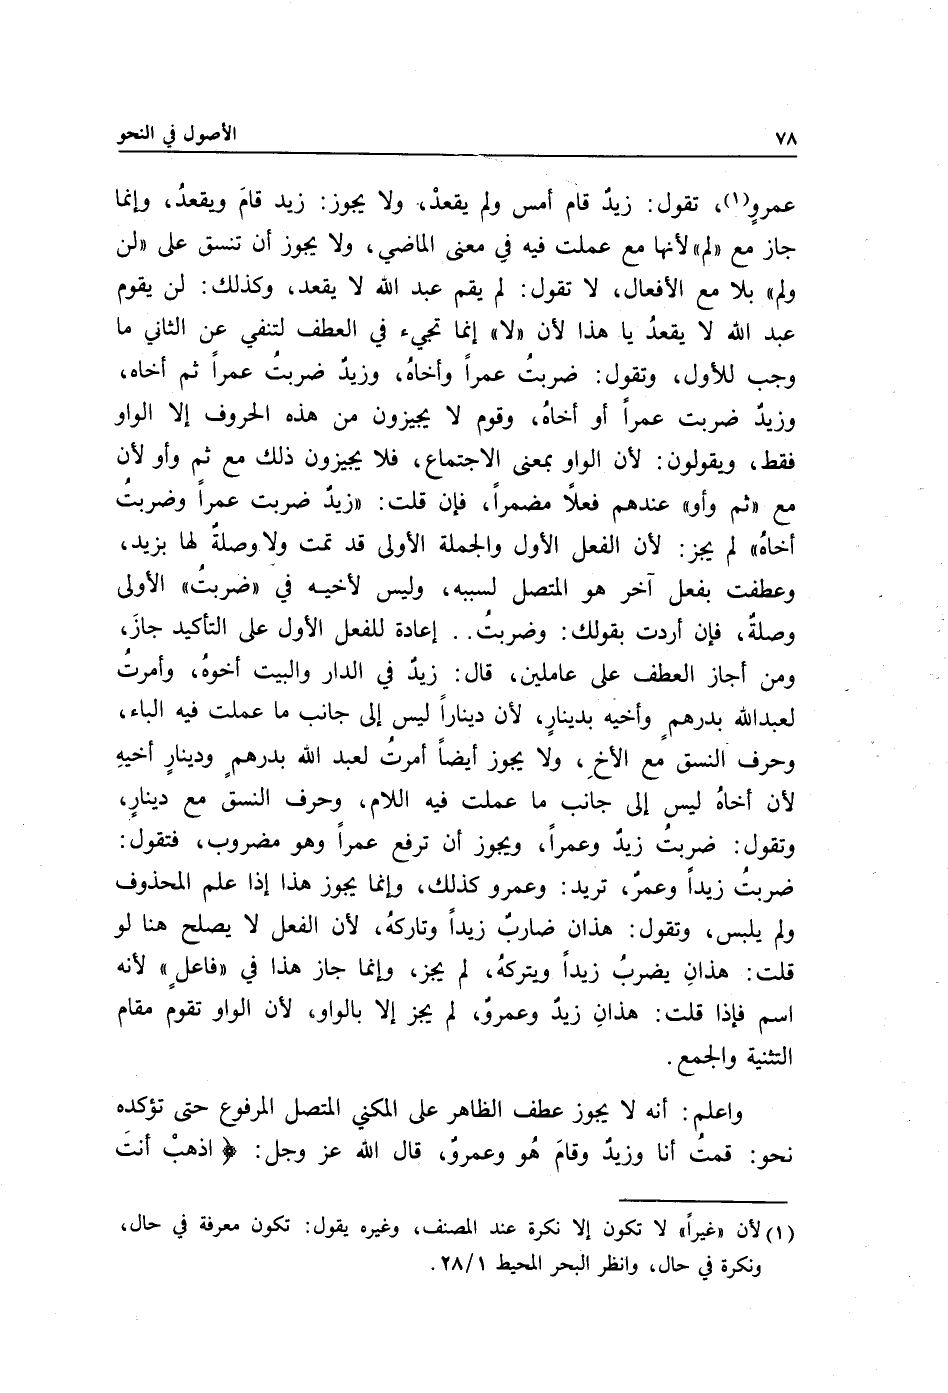 ٧٨ الأصول في النحو
عمروٍ(١)، تقول: زيدٌ قام أمس ولم يقعدْ، ولا يجوز: زيد قامَ ويقعدُ، وإنما
جاز مع «لم» لأنها مع عملت فيه في معنى الماضي، ولا يجوز أن تنسق على «لن
ولم» بلا مع الأفعال، لا تقول: لم يقم عبد الله لا يقعد، وكذلك: لن يقوم
عبد الله لا يقعدُ يا هذا لأن «لا» إنما تجيء في العطف لتنفي عن الثاني ما
وجب للأول، وتقول: ضربتُ عمراً وأخاهُ، وزيدٌ ضربتُ عمراً ثم أخاه،
وزيدٌ ضربت عمراً أو أخاهُ، وقوم لا يجيزون من هذه الحروف إلا الواو
فقط، ويقولون: لأن الواو بمعنى الاجتماع، فلا يجيزون ذلك مع ثم وأو لأن
مع «ثم وأو» عندهم فعلًا مضمراً، فإن قلت: «زيدٌ ضربت عمراً وضربتُ
أخاهُ» لم يجز: لأن الفعل الأول والجملة الأولى قد تمت ولا وصلةٌ لها بزيد،
وعطفت بفعل آخر هو المتصل لسببه، وليس لأخيه في «ضربتُ» الأولى
وصلةٌ، فإن أردت بقولك: وضربتُ.. إعادة للفعل الأول على التأكيد جازَ،
ومن أجاز العطف على عاملين، قال: زيدٌ في الدار والبيت أخوهُ، وأمرتُ
لعبدالله بدرهمٍ وأخيه بدينارٍ، لأن ديناراً ليس إلى جانب ما عملت فيه الباء،
وحرف النسق مع الأخِ، ولا يجوز أيضاً أمرتُ لعبد الله بدرهمٍ ودينارٍ أخيهِ
لأن أخاهُ ليس إلى جانب ما عملت فيه اللام، وحرف النسق مع دينارٍ،
وتقول: ضربتُ زيدٌ وعمراً، ويجوز أن ترفع عمراً وهو مضروب، فتقول:
ضربتُ زيداً وعمرٌ، تريد: وعمرو كذلك، وإنما يجوز هذا إذا علم المحذوف
ولم يلبس، وتقول: هذان ضاربٌ زيداً وتاركهُ، لأن الفعل لا يصلح هنا لو
قلت: هذانِ يضربُ زيداً ويتركهُ، لم يجز، وإنما جاز هذا في «فاعلٍ» لأنه
اسم فإذا قلت: هذانِ زيدٌ وعمروٌ، لم يجز إلا بالواو، لأن الواو تقوم مقام
التثنية والجمع.
واعلم: أنه لا يجوز عطف الظاهر على المكني المتصل المرفوع حتى تؤكده
نحو: قمتُ أنا وزيدٌ وقامَ هُو وعمروٌ، قال الله عز وجل: ﴿اذهبْ أنتَ
(١) لأن «غيراً» لا تكون إلا نكرة عند المصنف، وغيره يقول: تكون معرفة في حال،
ونكرة في حال، وانظر البحر المحيط ٢٨/١.